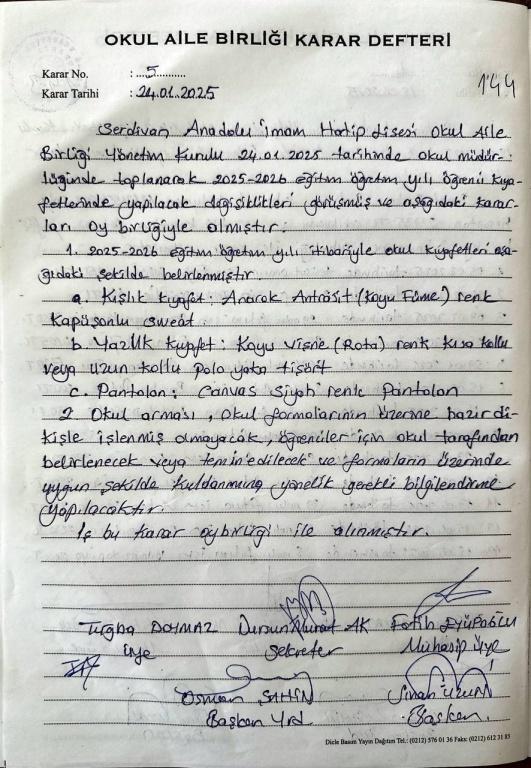 OKUL AİLE BİRLİĞİ KARAR DEFTERİ
Karar No. : 5
Karar Tarihi : 24.01.2025
144
Serdivan Anadolu İmam Hatip Lisesi Okul Aile
Birliği Yönetim Kurulu 24.01.2025 tarihinde okul müdür-
lüğünde toplanarak 2025-2026 eğitim öğretim yılı öğrenci kıya-
fetlerinde yapılacak değişiklikleri görüşmüş ve aşağıdaki karar-
ları oy birliğiyle almıştır.
1. 2025-2026 eğitim öğretim yılı itibariyle okul kıyafetleri aşa-
ğıdaki şekilde belirlenmiştir.
a. Kışlık kıyafet: Anarok Antrasit (Koyu Füme) renk
Kapüşonlu sweat.
b. Yazlık kıyafet: Koyu Vişne (Rota) renk kısa kollu
veya uzun kollu Polo yaka tişört
c. Pantolon: Canvas siyah renk Pantolon
2. Okul arması, okul formalarının üzerine hazır di-
kişle işlenmiş olmayacak, öğrenciler için okul tarafından
belirlenecek veya temin edilecek ve formaların üzerinde
uygun şekilde kullanmına yönelik gerekli bilgilendirme
yapılacaktır.
İş bu karar oybirliği ile alınmıştır.
Tuğba DOYMAZ Dursun Murat AK Fatih EYÜPOĞLU
Üye Sekreter Muhasip Üye
Osman ŞAHİN Sinan UZUN
Başkan Yrd Başkan
Dicle Basım Yayın Dağıtım Tel.: (0212) 576 01 36 Faks: (0212) 612 31 83